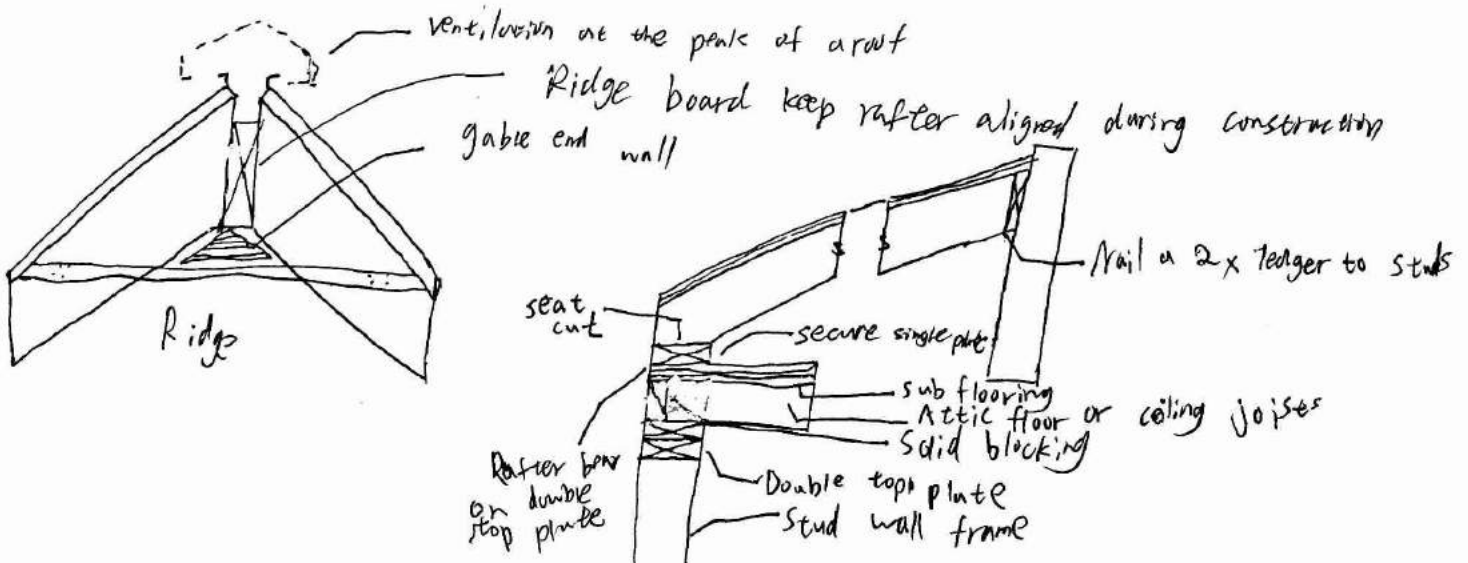 ventilation at the peak of a roof
Ridge board keep rafter aligned during construction
gable end wall
Ridge
Nail a 2x ledger to studs
seat
cut
secure single plate
sub flooring
Attic floor or ceiling joists
Solid blocking
Rafter bear
on double
top plate
Double top plate
Stud wall frame